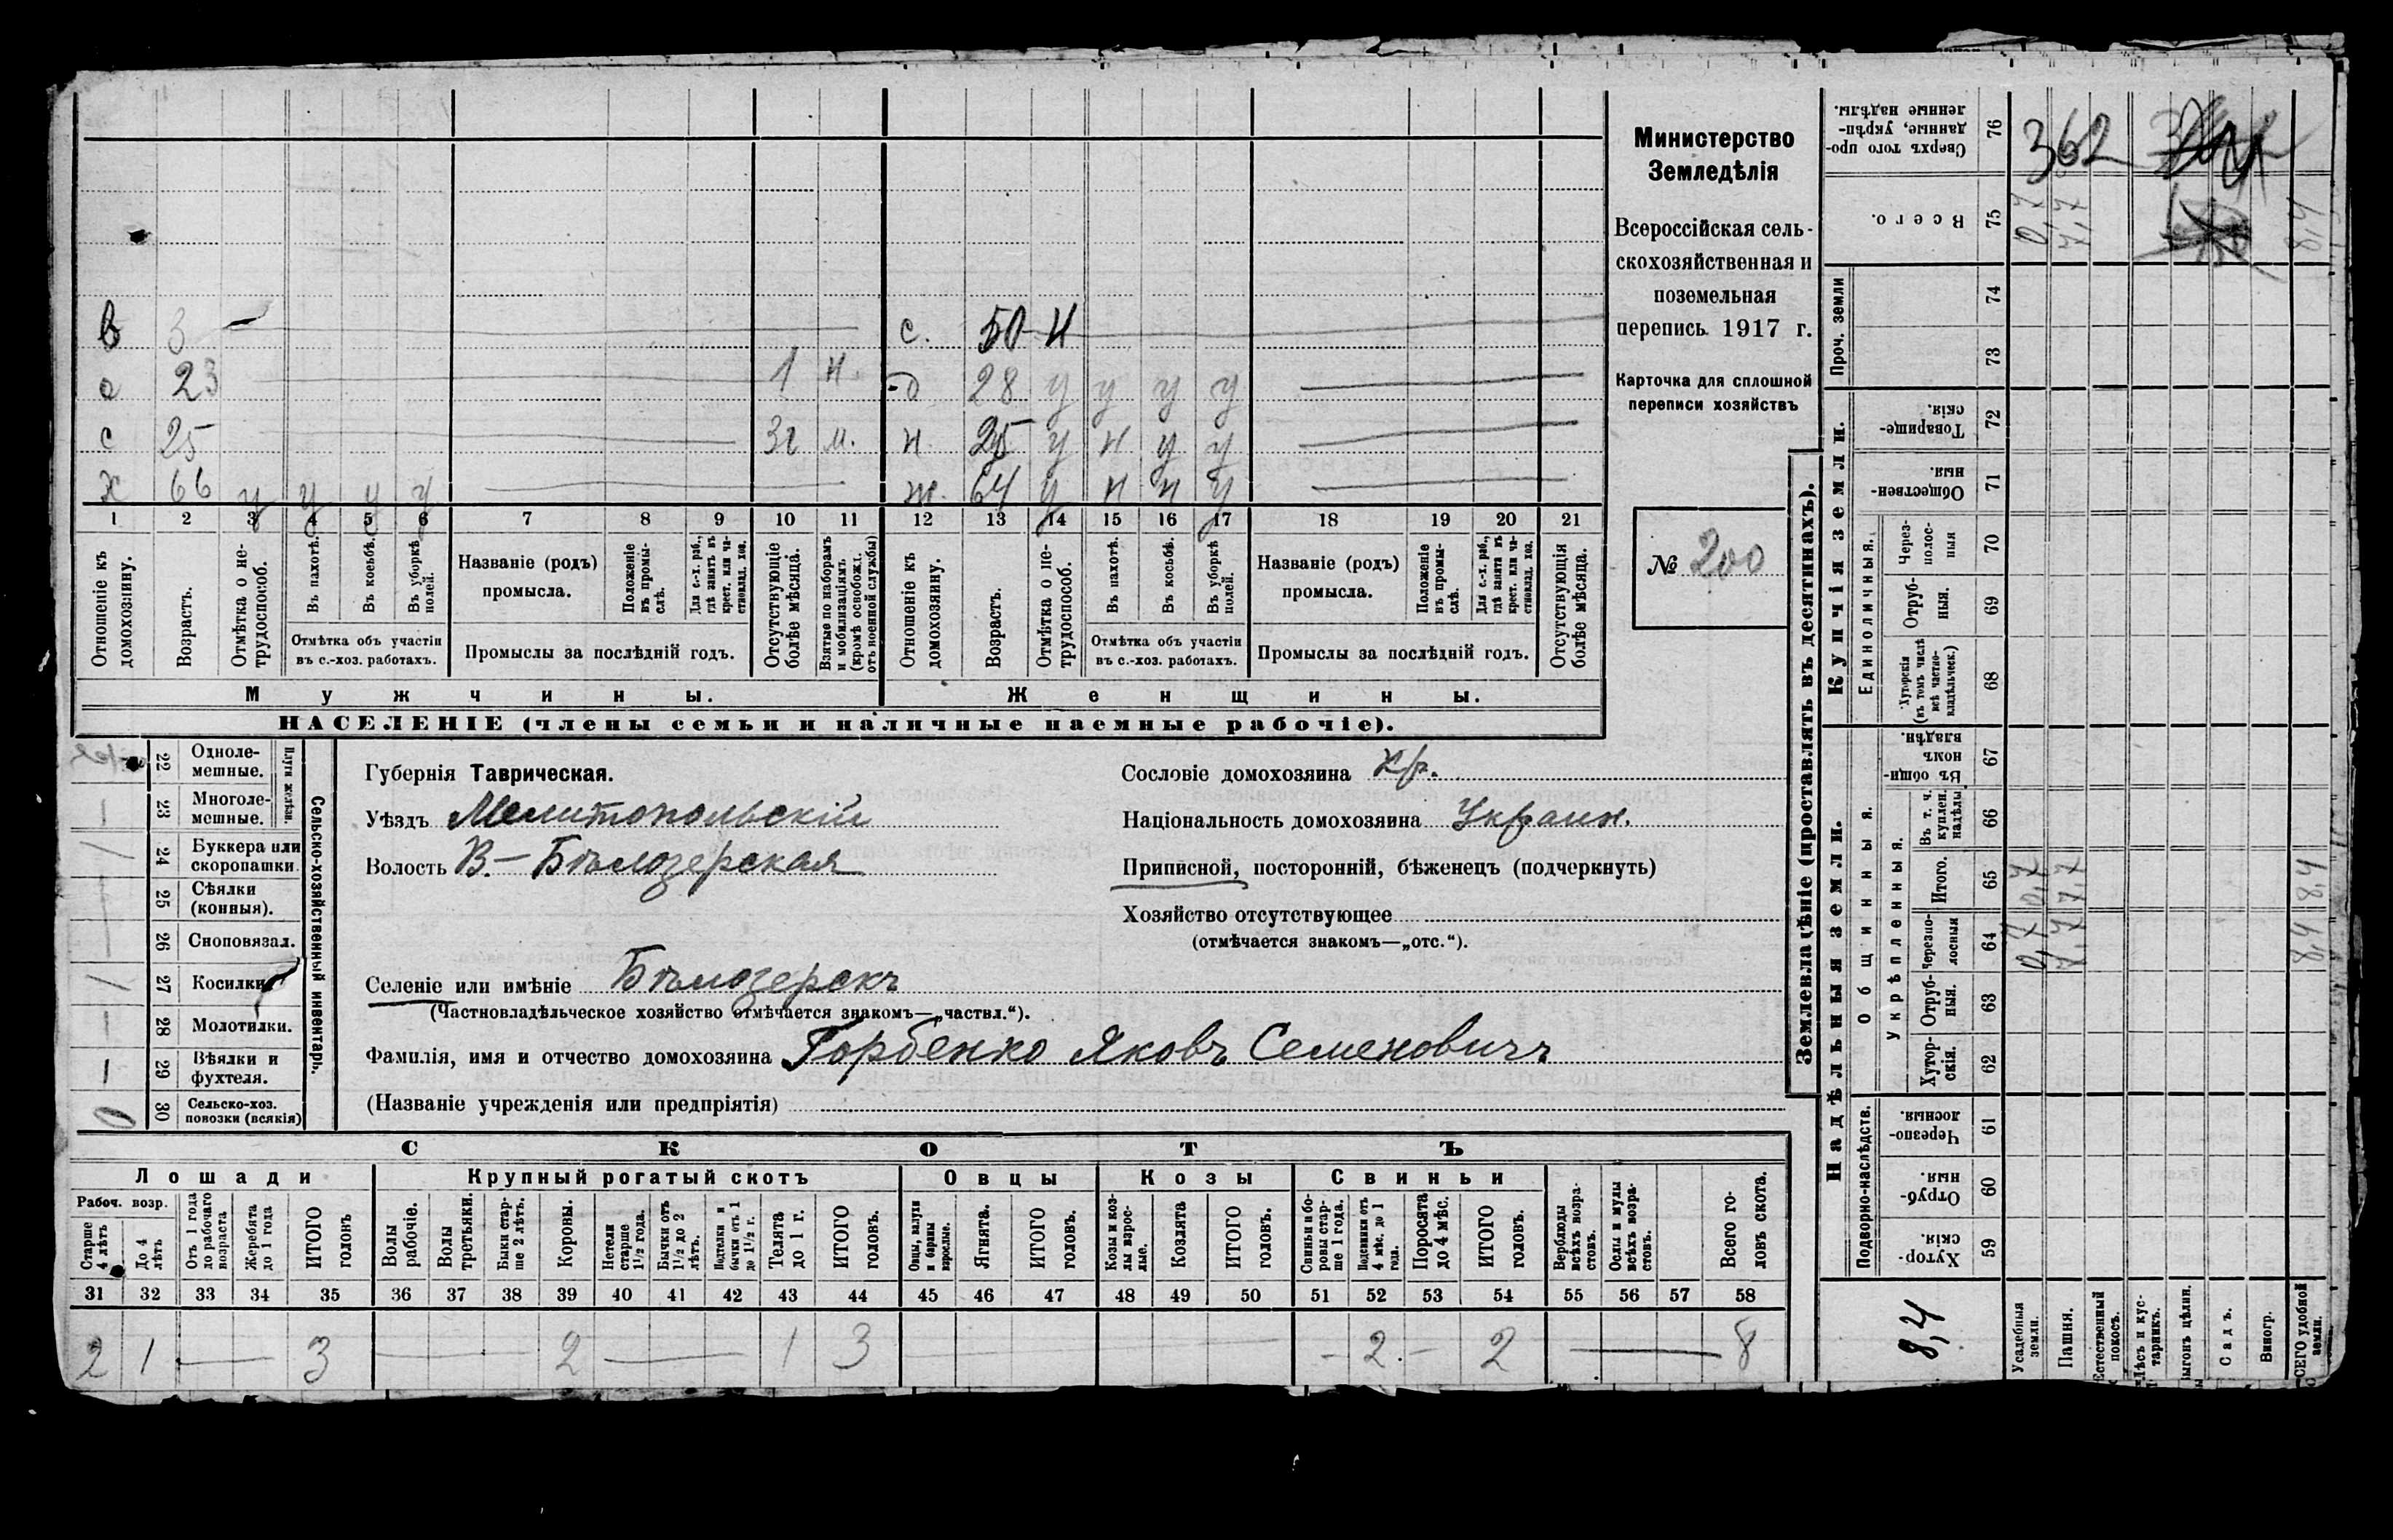 Министерство
Земледѣлія
Всероссійская сель-
скохозяйственная и
поземельная
перепись 1917 г.
Карточка для сплошной
переписи хозяйствъ
№ 200
в 3 —
с 23 1 н.
с 25 м.
66 у у у у
с. 50 н
28 у у у у
н. 25 у н у у
ж. 64 у н н у
1 2 3 4 5 6 7 8 9 10 11 12 13 14 15 16 17 18 19 20 21
Отношеніе къ домохозяину.
Возрастъ.
Отмѣтка о не-трудоспособ.
Въ пахотѣ.
Въ косьбѣ.
Въ уборкѣ полей.
Отмѣтка объ участіи
въ с.-хоз. работахъ.
Названіе (родъ)
промысла.
Положеніе въ промы-слѣ.
Для с.-х. раб., гдѣ занятъ въ крест. или ча-стновлад. хоз.
Промыслы за послѣдній годъ.
Отсутствующіе болѣе мѣсяца.
Взятые по наборамъ и мобилизаціямъ (кромѣ освобожд. отъ военной службы)
Отношеніе къ домохозяину.
Возрастъ.
Отмѣтка о не-трудоспособ.
Въ пахотѣ.
Въ косьбѣ.
Въ уборкѣ полей.
Отмѣтка объ участіи
въ с.-хоз. работахъ.
Названіе (родъ)
промысла.
Положеніе въ промы-слѣ.
Для с.-х. раб., гдѣ занята въ крест. или ча-стновлад. хоз.
Промыслы за послѣдній годъ.
Отсутствующія болѣе мѣсяца.
Мужчины.
Женщины.
НАСЕЛЕНІЕ (члены семьи и наличные наемные рабочіе).
Сельско-хозяйственный инвентарь.
Плуги желѣзн.
22 Одноле-мешные.
1 23 Многоле-мешные.
1 24 Буккера или скоропашки.
25 Сѣялки (конныя).
26 Сноповязал.
1 27 Косилки
1 28 Молотилки.
1 29 Вѣялки и фухтеля.
0 30 Сельско-хоз. повозки (всякія)
Губернія Таврическая.
Уѣздъ Мелитопольскій
Волость В.-Бѣлозерская
Селеніе или имѣніе Бѣлозерскъ
(Частновладѣльческое хозяйство отмѣчается знакомъ—„частвл.“).
Фамилія, имя и отчество домохозяина Горбенко Яковъ Семеновичъ
(Названіе учрежденія или предпріятія)
Сословіе домохозяина Кр.
Національность домохозяина Украин.
Приписной, посторонній, бѣженецъ (подчеркнуть)
Хозяйство отсутствующее
(отмѣчается знакомъ—„отс.“).
СКОТЪ
Лошади
Крупный рогатый скотъ
Овцы
Козы
Свиньи
Рабоч. возр.
Старше 4 лѣтъ
До 4 лѣтъ
Отъ 1 года до рабочаго возраста
Жеребята до 1 года
ИТОГО головъ
Волы рабочіе.
Волы третьяки.
Быки стар-ше 2 лѣтъ.
Коровы.
Нетели старше 1½ года.
Бычки отъ 1½ до 2 лѣтъ.
Подтелки и бычки отъ 1 до 1½ г.
Телята до 1 г.
ИТОГО головъ.
Овцы, валухи и бараны взрослые.
Ягнята.
ИТОГО головъ.
Козы и коз-лы взрос-лые.
Козлята
ИТОГО головъ.
Свиньи и бо-ровы стар-ше 1 года.
Подсвинки отъ 4 мѣс. до 1 года.
Поросята до 4 мѣс.
ИТОГО головъ.
Верблюды всѣхъ возра-стовъ.
Ослы и мулы всѣхъ возра-стовъ.
Всего го-ловъ скота.
31 32 33 34 35 36 37 38 39 40 41 42 43 44 45 46 47 48 49 50 51 52 53 54 55 56 57 58
2 1 — 3 — 2 — 1 3 — - 2. - 2 — 8
Землевладѣніе (проставлять въ десятинахъ).
Сверхъ того про-данные, укрѣп-ленные надѣлы. 76 362
Всего. 75 0,7 7,7 8,4
Проч. земли
74
73
Купчія земли.
Товарище-скія. 72
Обществен-ныя. 71
Единоличныя.
Через-полос-ныя 70
Отруб-ныя. 69
Хуторскія (въ томъ числѣ всѣ частно-владѣльческ.) 68
Надѣльныя земли.
Общинныя.
Въ общи-номъ владѣн. 67
Укрѣпленныя.
Въ т. ч. куплен. надѣлы 66
Итого. 65 0,7 7,7 8,4
Черезпо-лосныя 64 0,7 7,7 8,4
Отруб-ныя. 63
Хутор-скія. 62
Подворно-наслѣдств.
Черезпо-лосныя. 61
Отруб-ныя. 60
Хутор-скія. 59
8,4
Усадебныя земли.
Пашня.
Естественный покосъ.
Лѣсъ и кус-тарникъ.
Выгонъ цѣлин.
Садъ.
Виногр.
ВСЕГО удобной земли.